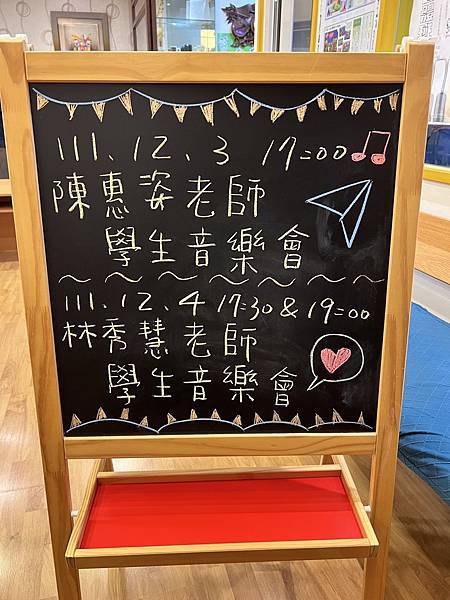 111.12.3 17:00
陳惠姿老師
學生音樂會
111.12.4 17:30 & 19:00
林秀慧老師
學生音樂會